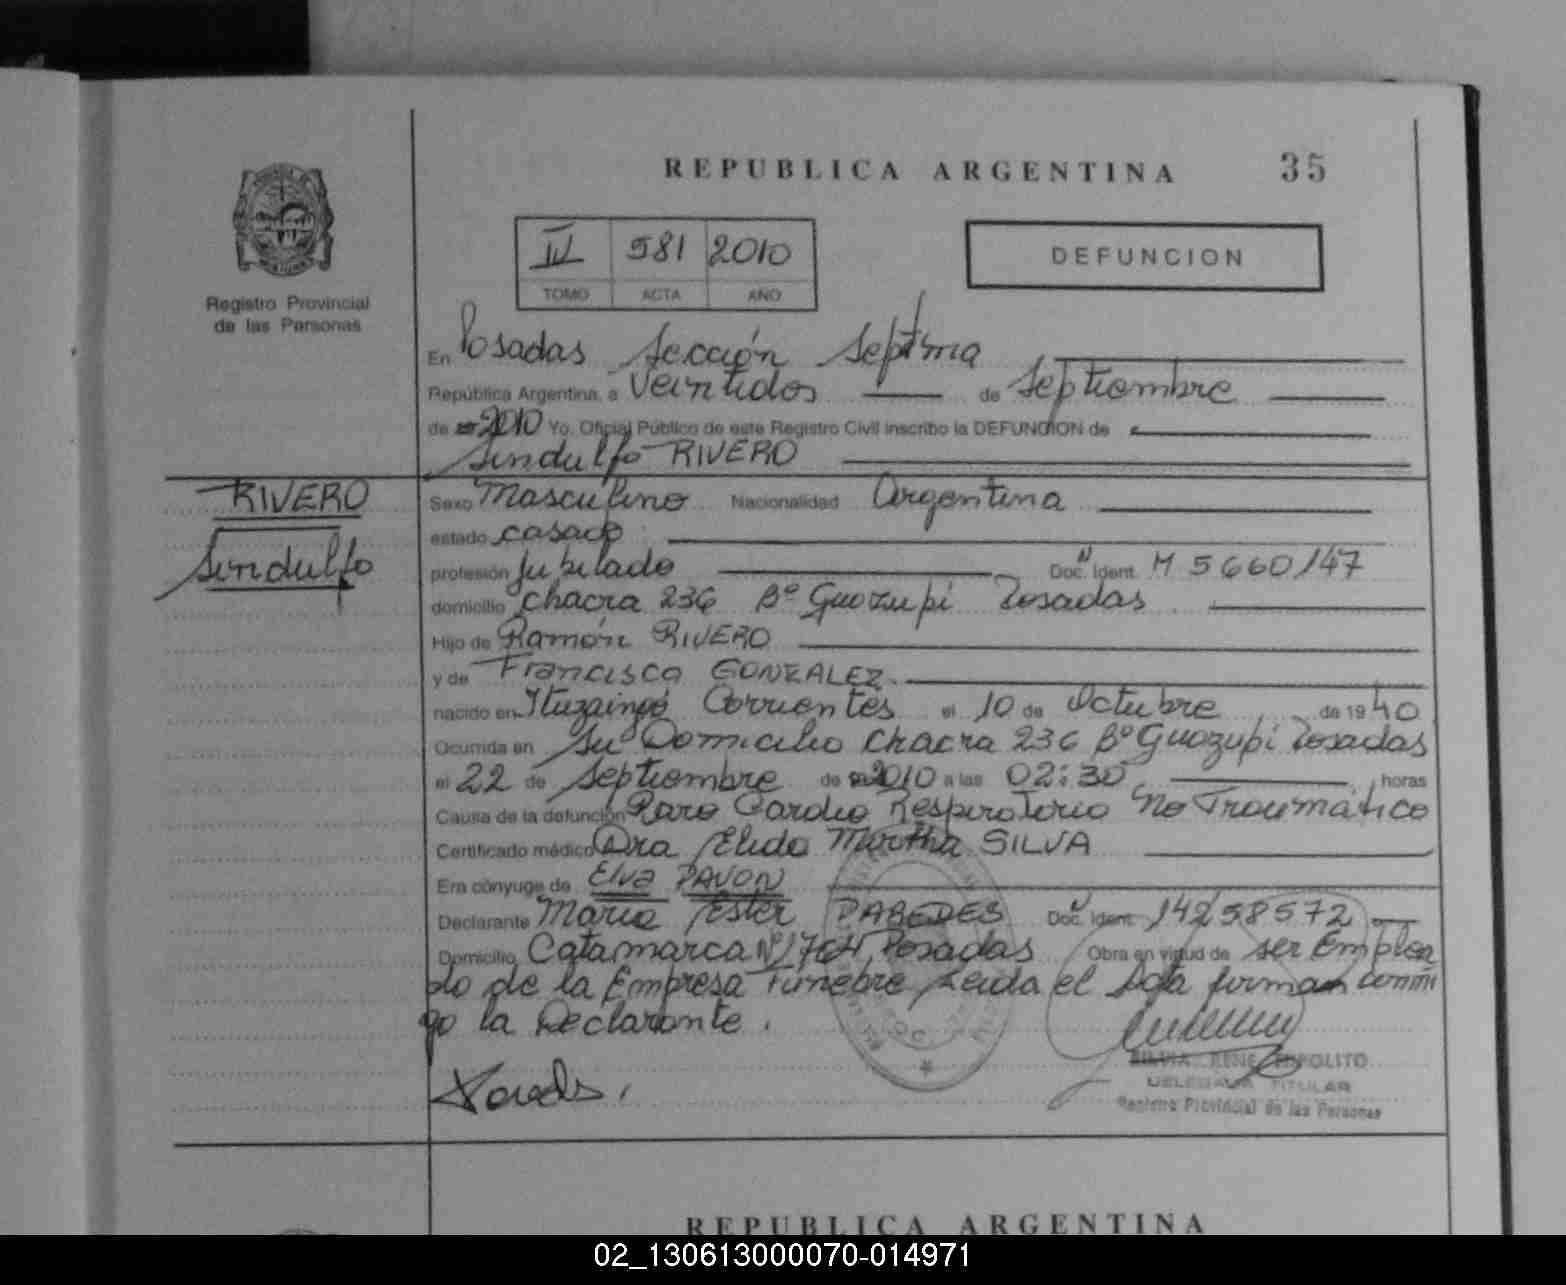 REPUBLICA ARGENTINA 35
Registro Provincial
de las Personas
581 2010
TOMO ACTA AÑO
DEFUNCION
En Posadas Sección Septima
República Argentina, a Veintidos de Septiembre
de 2010 Yo, Oficial Público de este Registro Civil inscribo la DEFUNCION de
Sindulfo RIVERO
RIVERO
Sindulfo
Sexo Masculino Nacionalidad Argentina
estado casado
profesión Jubilado Doc. Ident. M 5660147
domicilio Chacra 236 Bº Guazupi Posadas
Hijo de Ramón RIVERO
y de Francisca GONZALEZ
nacido en Ituzaingó Corrientes el 10 de Octubre de 1940
Ocurrida en Su Domicilio Chacra 236 Bº Guazupi Posadas
el 22 de Septiembre de 2010 a las 02:30 horas
Causa de la defunción Paro Cardio Respiratorio No Traumático
Certificado médico Dra Elida Martha SILVA
Era cónyuge de Elva PAVON
Declarante Maria Ester PAREDES Doc. Ident. 14258572
Domicilio Catamarca Nº Posadas Obra en virtud de ser Emplea
do de la Empresa Funebre Leida el Acta firman conmi
go la Declarante.
SILVIA RENE IPPOLITO
DELEGADA TITULAR
Registro Provincial de las Personas
REPUBLICA ARGENTINA
02_130613000070-014971